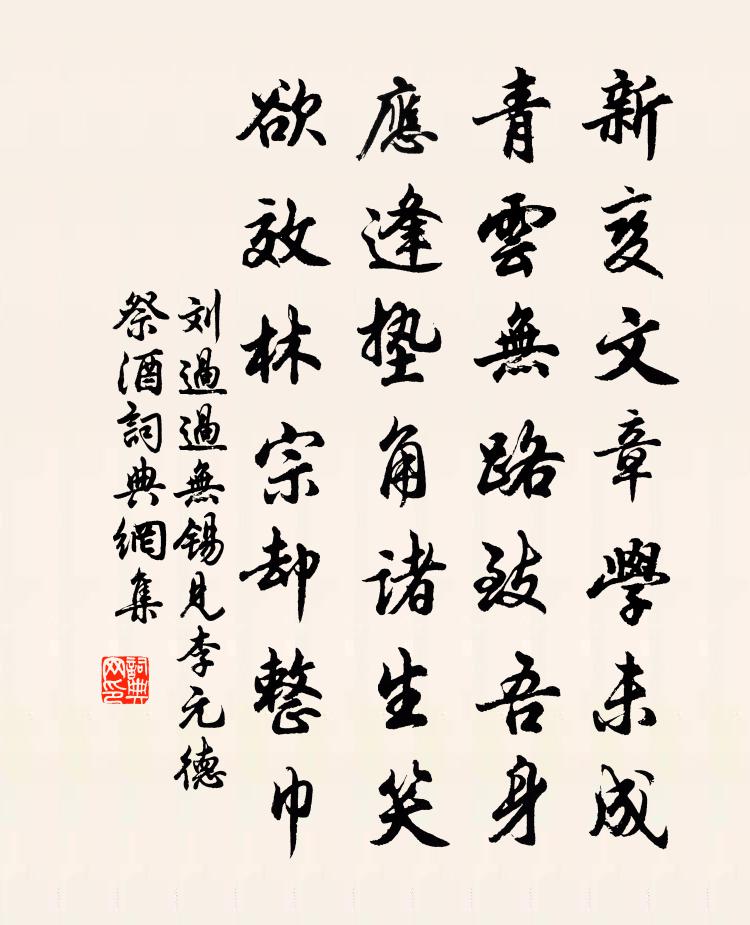 新变文章學未成
青雲無路致吾身
應逢墊角諸生笑
欲效林宗却整巾
刘過過無锡見李元德
祭酒詞典網集
詞典网印